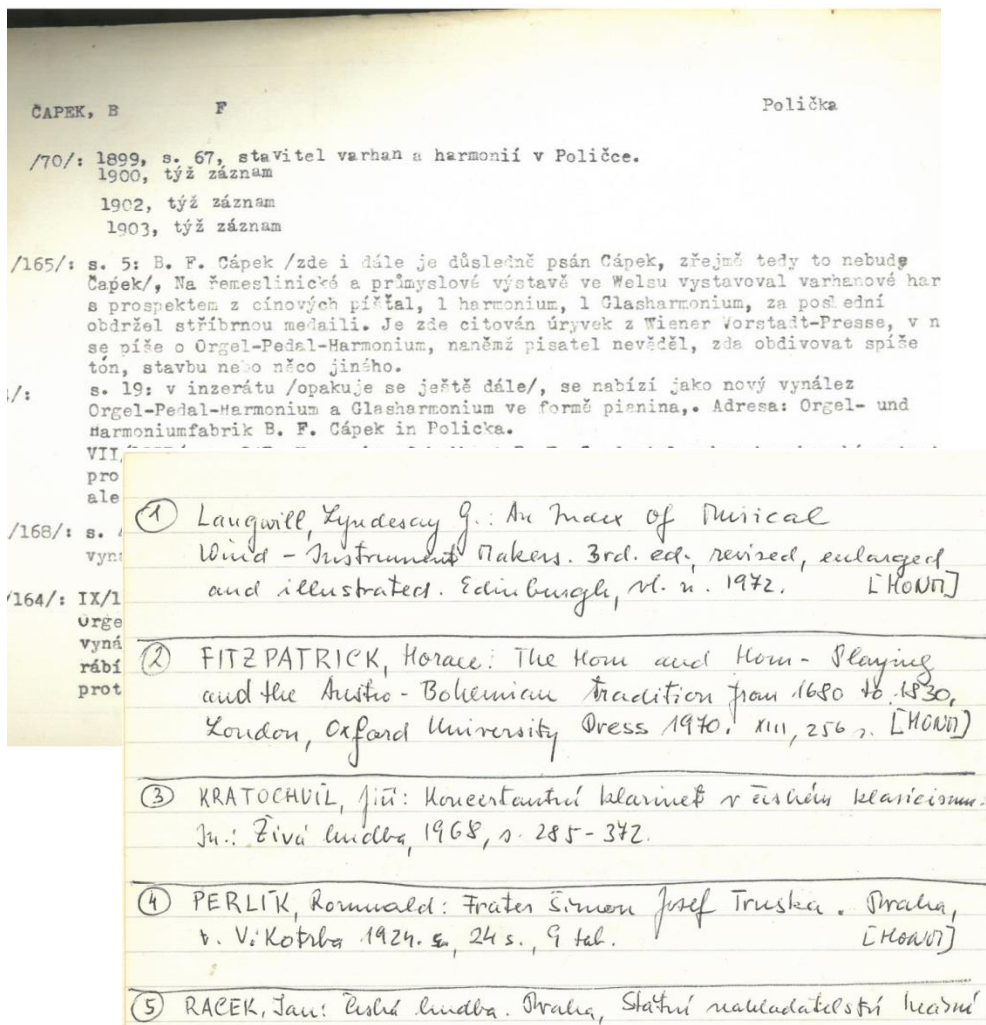 ČAPEK, B F Polička
/70/: 1899, s. 67, stavitel varhan a harmonií v Poličce.
1900, týž záznam
1902, týž záznam
1903, týž záznam
/165/: s. 5: B. F. Cápek /zde i dále je důsledně psán Cápek, zřejmě tedy to nebude
Čapek/, Na řemeslnické a průmyslové výstavě ve Welsu vystavoval varhanové har
s prospektem z cínových píšťal, 1 harmonium, 1 Glasharmonium, za poslední
obdržel stříbrnou medaili. Je zde citován úryvek z Wiener Vorstadt-Presse, v n
se píše o Orgel-Pedal-Harmonium, naněmž pisatel nevěděl, zda obdivovat spíše
tón, stavbu nebo něco jiného.
/: s. 19: v inzerátu /opakuje se ještě dále/, se nabízí jako nový vynález
Orgel-Pedal-Harmonium a Glasharmonium ve formě pianina,. Adresa: Orgel- und
Harmoniumfabrik B. F. Cápek in Policka.
VII
pro
ale
/168/: s.
vyná
/164/: IX/1
Orge
vyná
rábí
prot
1 Langwill, Lyndesay G.: An Index of Musical
Wind - Instrument Makers. 3rd. ed., revised, enlarged
and illustrated. Edinburgh, vl. n. 1972. [HONM]
2 FITZPATRICK, Horace: The Horn and Horn - Playing
and the Austro - Bohemian tradition from 1680 to 1830,
London, Oxford University Press 1970. XIII, 256 s. [HONM]
3 KRATOCHVÍL, Jiří: Koncertantní klarinet v českém klasicismu.
In.: Živá hudba, 1968, s. 285-372.
4 PERLÍK, Romuald: Frater Šimon Josef Truska. Praha,
V. Kotrba 1924. 24 s., 9 tab. [HONM]
5 RACEK, Jan: Česká hudba. Praha, Státní nakladatelství krásné